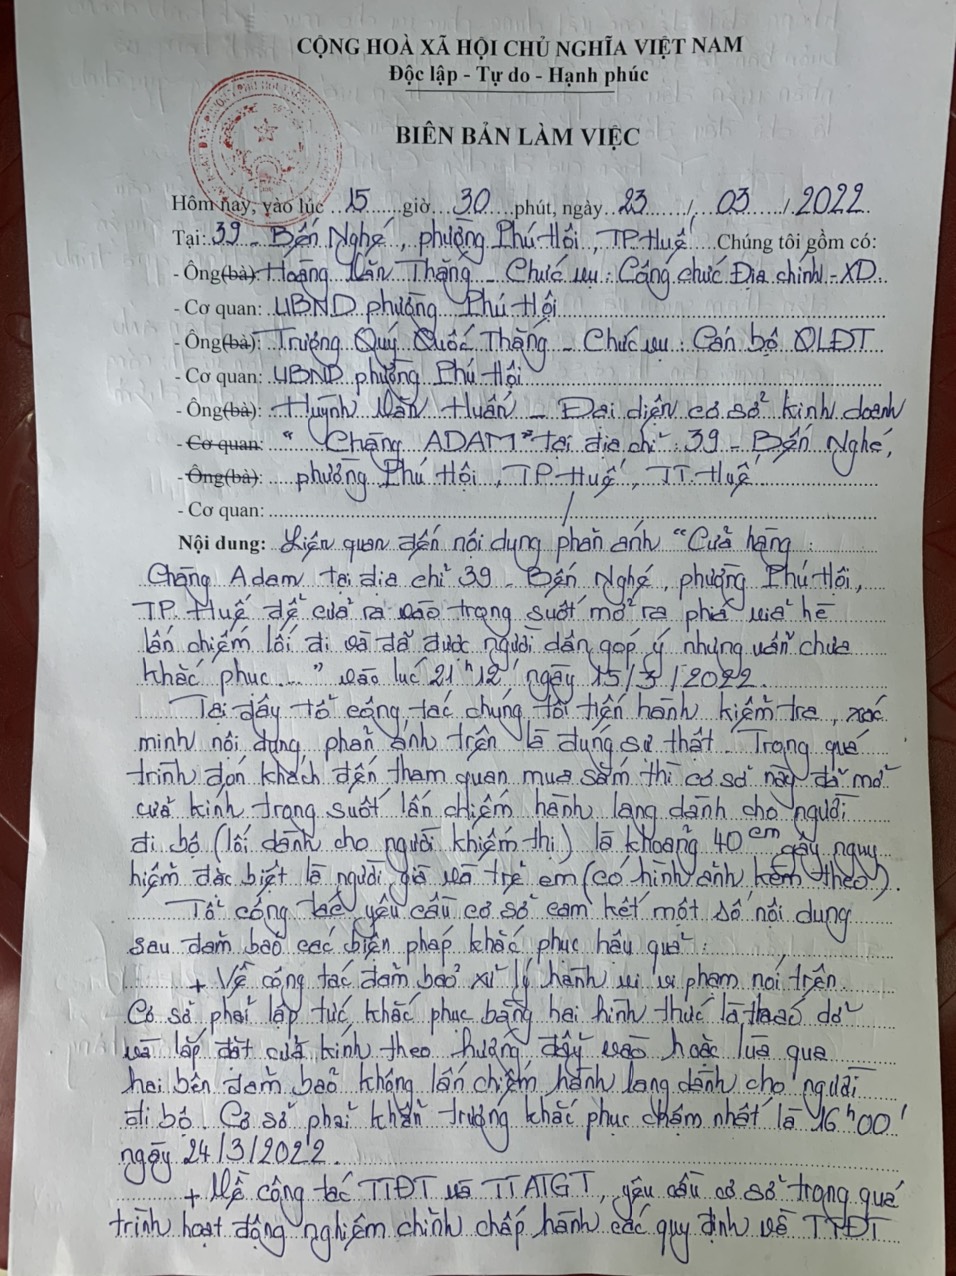 CỘNG HOÀ XÃ HỘI CHỦ NGHĨA VIỆT NAM
Độc lập - Tự do - Hạnh phúc
BIÊN BẢN LÀM VIỆC
Hôm nay, vào lúc 15 giờ 30 phút, ngày 23 / 03 / 2022
Tại: 39 - Bến Nghé, phường Phú Hội, TP Huế Chúng tôi gồm có:
- Ông(bà): Hoàng Văn Thắng - Chức vụ: Công chức Địa chính - XD
- Cơ quan: UBND phường Phú Hội
- Ông(bà): Trương Quý Quốc Thắng - Chức vụ: Cán bộ QLĐT
- Cơ quan: UBND phường Phú Hội
- Ông(bà): Huỳnh Văn Huấn - Đại diện cơ sở kinh doanh
- Cơ quan: "Chàng ADAM" tại địa chỉ: 39 - Bến Nghé,
- Ông(bà): phường Phú Hội, TP Huế, TT. Huế
- Cơ quan: /
Nội dung: Liên quan đến nội dung phản ánh "Cửa hàng
Chàng Adam tại địa chỉ 39 - Bến Nghé, phường Phú Hội,
TP. Huế để cửa ra vào trong suốt mở ra phía vỉa hè
lấn chiếm lối đi và đã được người dân góp ý nhưng vẫn chưa
khắc phục..." vào lúc 21h12' ngày 15/3/2022.
Tại đây tổ công tác chúng tôi tiến hành kiểm tra, xác
minh nội dung phản ánh trên là đúng sự thật. Trong quá
trình đón khách đến tham quan mua sắm thì cơ sở này đã mở
cửa kính trong suốt lấn chiếm hành lang dành cho người
đi bộ (lối dành cho người khiếm thị) là khoảng 40cm gây nguy
hiểm đặc biệt là người già và trẻ em (có hình ảnh kèm theo).
Tổ công tác yêu cầu cơ sở cam kết một số nội dung
sau đảm bảo các biện pháp khắc phục hậu quả:
+ Về công tác đảm bảo xử lý hành vi vi phạm nói trên.
Cơ sở phải lập tức khắc phục bằng hai hình thức là tháo dỡ
và lắp đặt cửa kính theo hướng đẩy vào hoặc lùa qua
hai bên đảm bảo không lấn chiếm hành lang dành cho người
đi bộ. Cơ sở phải khẩn trương khắc phục chậm nhất là 16h00'
ngày 24/3/2022.
+ Về công tác TTĐT và TTATGT, yêu cầu cơ sở trong quá
trình hoạt động nghiêm chỉnh chấp hành các quy định về TTĐT